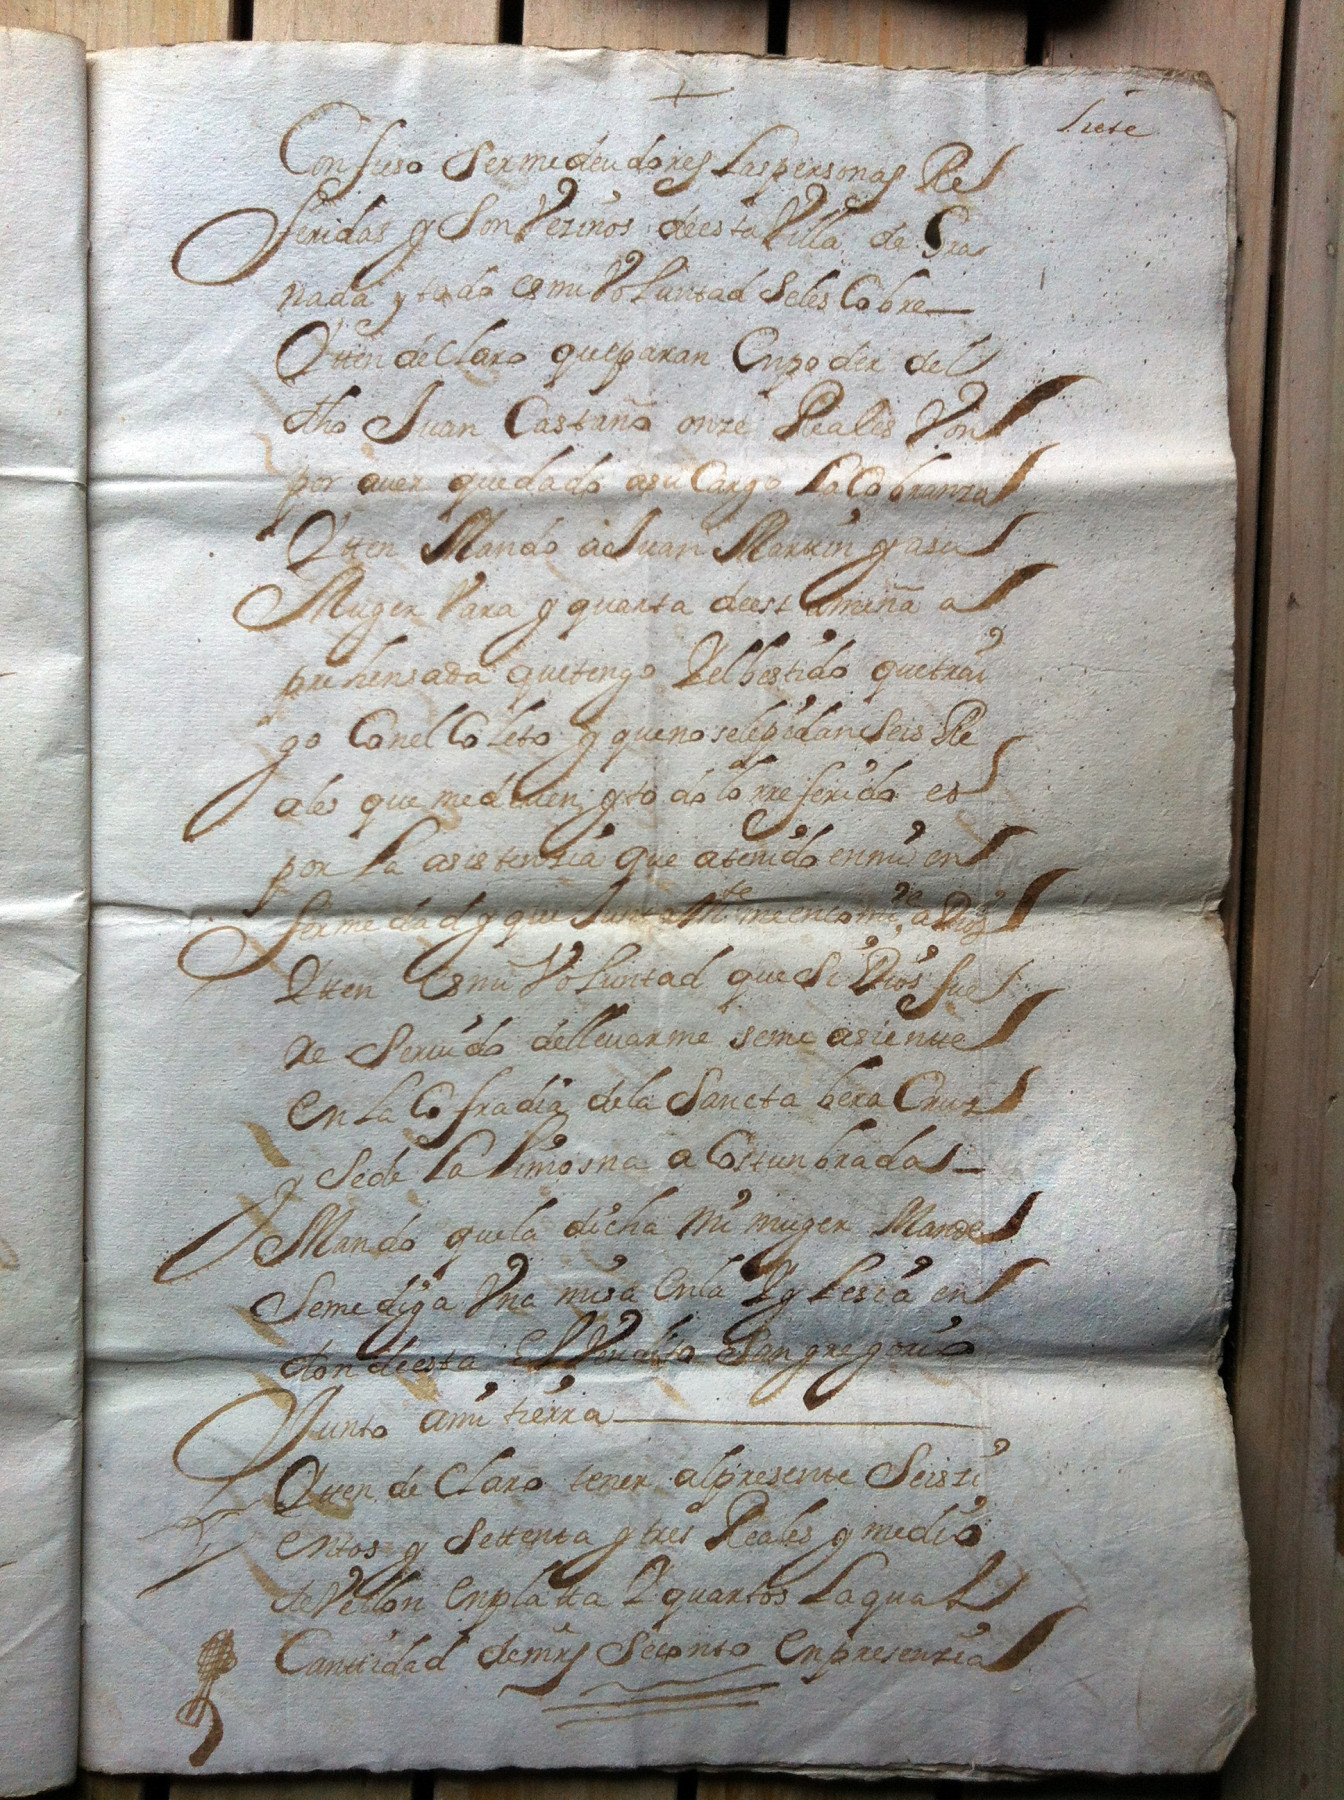 siete
Confieso Sermedeudores Las personas Re
feridas y Son Vezinos deesta Villa de Gra
nada y todo es mi Voluntad Seles Cobre
Ytten deClaro que paran Enpoder del
dho Juan Castaño onze Reales Von
por auer quedado asu Cargo La Cobranza
Ytten Mando a Juan Martin y asu
Muger Vara y quarta de estameña a
prehensada que tengo Yel bestido que trai
go Conel Coleto y que no sele pidan Seis Re
ales que me deuen y todo lo rreferido es
por La asistenzia que atenido en mi en
fermedad y que Juntamte me encomide a Dios
Ytten Es mi Voluntad que Si Dios fue
re Seruido dellevarme seme asientte
en La Cofradia dela Sancta bera Cruz
y Sede La limosna aCostunbrada
Mando quela dicha Mi muger Mande
Semediga Vna misa Enla Yglesia en
donde esta San gregorio
Junto ami tierra
Ytten deClaro tener alpresente Seiszi
entos y Settenta y tres Reales y medio
de Vellon Enplatta Y quartos La qual
Canttidad demrs Seconto Enpresenzia